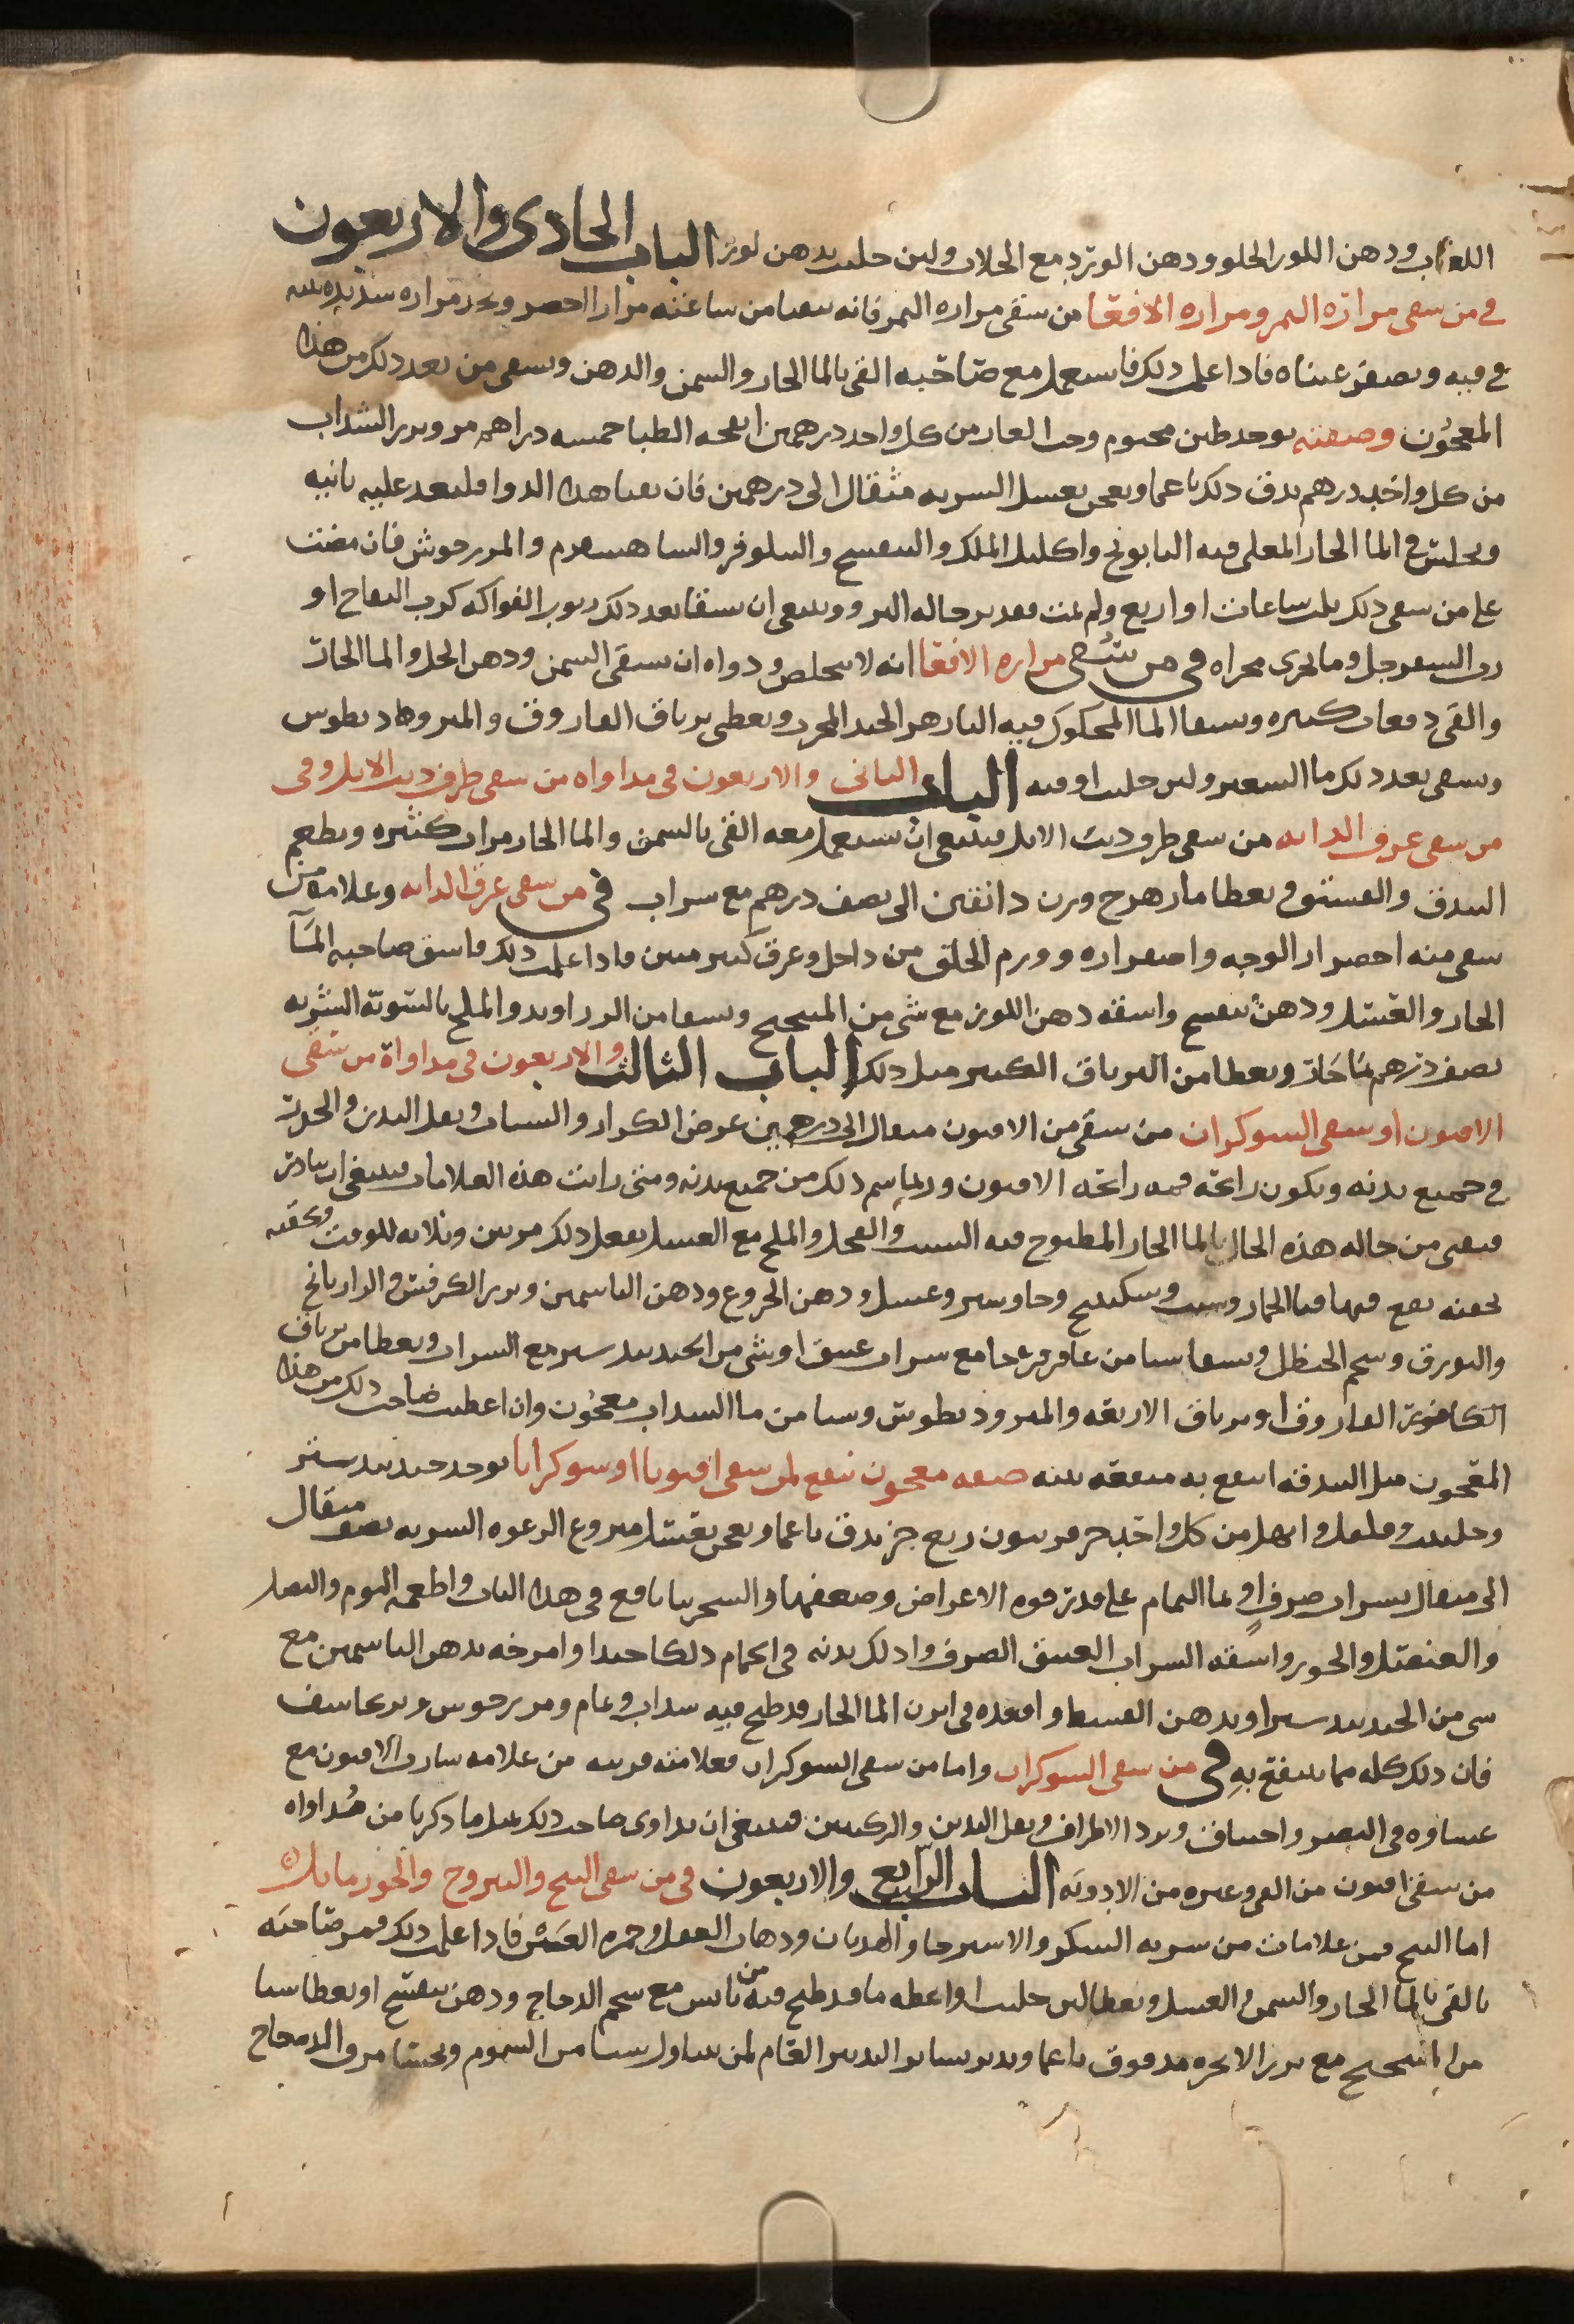 اللعاب ودهن اللوز الحلو ودهن الورد مع الجلاب ولبن حليب بدهن لوز الباب الحادى والاربعون
فى من سقى مرارة النمر ومراره الافعا من سقى مراره النمر فانه يتقيا من ساعته مرارا اخضر ويجد مراره شديده
فى فيه ويصفر عيناه فاذا علمت ذلك فاستعمل مع صاحبه القى بالما الحار والسمن والدهن ويسقى من بعد ذلك من هذا
المعجون وصفته يوخذ طين مختوم وحب الغار من كل واحد درهمين انفحه الظبا خمسه دراهم مر وبزر السداب
من كل واحد درهم يدق ذلك ناعما ويعجن بعسل الشربه مثقال الى درهمين فان تقيا هذا الدوا فليعد عليه ثانيه
ويجلس فى الما الحار المغلى فيه البابونج واكليل الملك والبنفسج والنيلوفر والشاهسفرم والمرزجوش فان مضت
على من سقى ذلك ثلث ساعات او اربع ولم يمت فقد يرجا له البرو وينبغى ان يسقا بعد ذلك ربوب الفواكه كرب التفاح او
رب السفرجل وما يجرى مجراه فى من سُقى مراره الافعا انه لا يتخلص ودواه ان يسقى السمن ودهن الحل والما الحار
والقى دفعات كثيره ويسقا الما المحكوك فيه البادزهر الجيد المجرب ويعطى ترياق الفاروق والمثروداديطوس
ويسقى بعد ذلك ما الشعير ولبن حليب اوقيه الباب الثانى والاربعون فى مداواه من سقى طرف ذنب الايل وفى
من سقى عرق الدابه من سقى طرف ذنب الايل فينبغى ان يستعمل معه القى بالسمن والما الحار مرارا كثيره ويطعم
البندق والفستق ويعطا فادزهرج وزن دانقين الى نصف درهم مع شراب فى من سقى عرق الدابه وعلامه من
سقى منه اخضرار الوجه واصفراره وورم الحلق من داخل وعرق كثير منتن فاذا علمت ذلك فاسق صاحبه المآ
الحار والعسل ودهن بنفسج واسقه دهن اللوز مع شى من الميبختج ويسقا من الزراوند والملح بالسويه الشربه
نصف درهم بما حار ويعطا من الترياق الكبير مثل ذلك الباب الثالث والاربعون فى مداواة من سقى
الافيون او سقى الشوكران من سقى من الافيون مثقال الى درهمين عرض الكزاز والسبات وثقل البدن والحرب
فى جميع بدنه ويكون رائحة فمه رائحه الافيون وربما شم ذلك من جميع بدنه ومتى رايت هذه العلامات فينبغى ان تبادر
فتقى من حاله هذه الحال بالما الحار المطبوخ فيه الشبت والفجل والملح مع العسل يفعل ذلك مرتين وثلاثه للوقت ويحقنه
بحقنه يقع فيها قثا الحمار وشبت وسكبينج وجاوشير وعسل ودهن الخروع ودهن الياسمين وبزر الكرفس والرازيانج
والبورق وشحم الحنظل ويسقا شيا من عاقرقرحا مع شراب عتيق او شى من الجندبيدستر مع الشراب ويعطا من ترياق
الفاروق او ترياق الاربعه والمثروديطوس وشيا من ما السداب معجون وان اعطيت صاحب ذلك من هذا
المعجون مثل البندقه انتفع به منفعه بينه صفه معجون ينفع لمن سقى افيونا او شوكرانا يوخذ جندبيدستر
وحلتيت وفلفل وابهل من كل واحد جز فربيون ربع جز يدق ناعما ويعجن بعسل منزوع الرغوه الشربه نصف مثقال
الى مثقال بشراب صرف او بما النمام على قدر قوه الاعراض وضعفها والسجرنيا نافع فى هذا الباب واطعمه الثوم والبصل
والعنصل والجوز واسقه الشراب العتيق الصرف وادلك بدنه فى الحمام دلكا جيدا وامرخه بدهن الياسمين مع
شى من الجندبيدستر او بدهن القسط واقعده فى ابزن الما الحار قد طبخ فيه سداب ونمام ومرزجوش وبرنجاسف
فان ذلك كله مما ينتفع بهِ فى من سقى الشوكران واما من سقى الشوكران فعلامته قريبه من علامه شارب الافيون مع
غشاوه فى البصر واختناق وبرد الاطراف وثقل اليدين والركبتين فينبغى ان يداوى صاحب ذلك بمثل ما ذكرنا من مُداواه
من سقى افيون من القى وغيره من الادويَه الباب الرابع والاربعون فى من سقى البنج واليبروح والجوز ماثل
اما البنج فمن علامات من شربه السكر والاسترخا والهذيان وذهاب العقل وحمره العين فاذا علمت ذلك فمر صاحبه
بالقى بالما الحار والسمن والعسل ويعطا لبن حليب او اعطه ما قد طبخ فيه من تين يابس مع شحم الدجاج ودهن بنفسج او يعطا شيا
من الميبختج مع بزر الانجره مدقوق ناعما ويدبر بساير التدبير العام لمن تناول شيا من السموم ويحسا مرق الدجاج